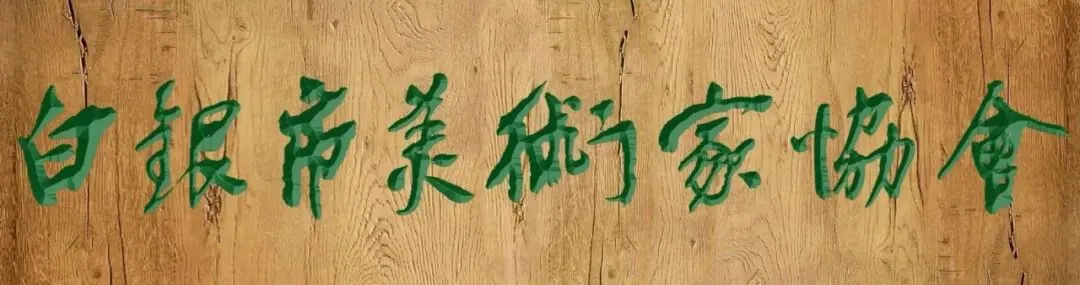 白銀市美術家協會